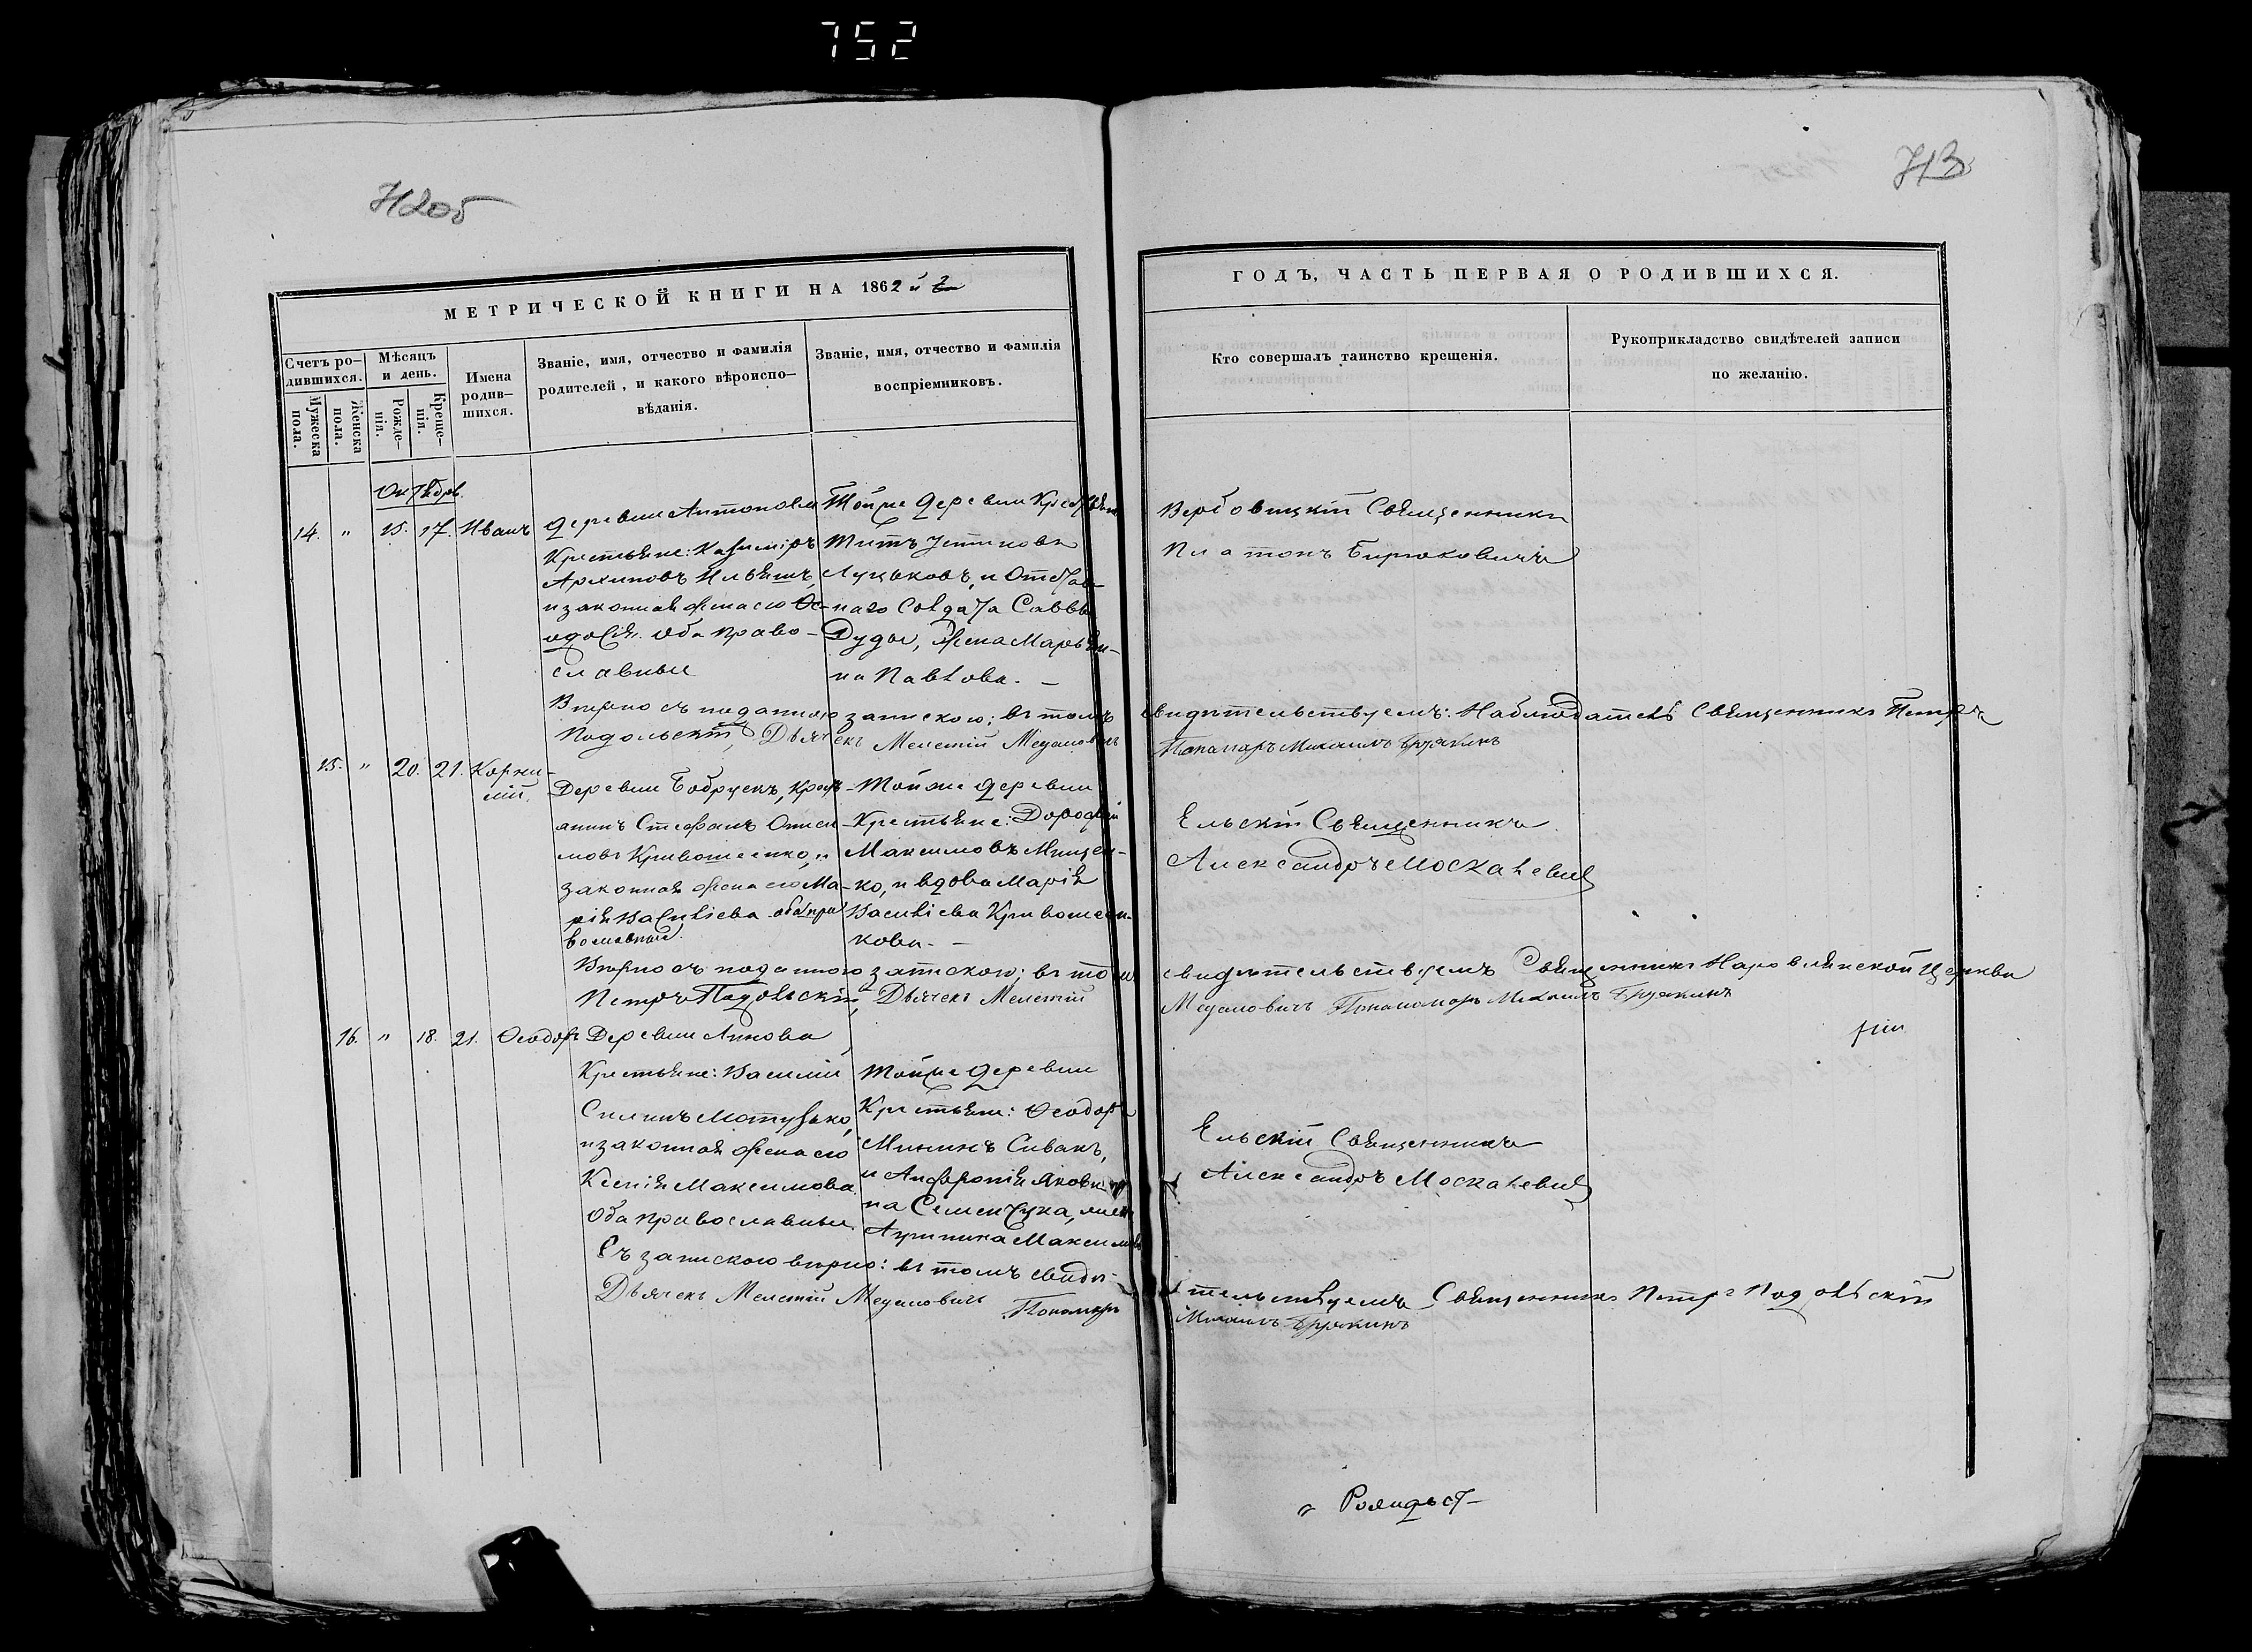 752
Н2об
Н3
МЕТРИЧЕСКОЙ КНИГИ НА 1862 й
ГОДЪ, ЧАСТЬ ПЕРВАЯ О РОДИВШИХСЯ.
Счетъ ро-
дившихся.
Мужеска
пола.
Женска
пола.
Мѣсяцъ
и день.
Рожде-
нія.
Креще-
нія.
Имена
родив-
шихся.
Званіе, имя, отчество и фамилія
родителей, и какого вѣроиспо-
вѣданія.
Званіе, имя, отчество и фамилія
воспріемниковъ.
Кто совершалъ таинство крещенія.
Рукоприкладство свидѣтелей записи
по желанію.
Октябрь
14. " 15. 17. Иванъ
деревни Антонова
Крестьяне: Казиміръ
Архиповъ Ильяшъ,
и законная жена его Ѳе-
одосія. Оба право-
славные
Тойже деревни Крестьян
Титъ Устиновъ
Луцьковъ, и Отстав-
наго Солдата Саввы
Дуды, жена Марьян-
на Павлова. —
Вербовицкій Священникъ
Платонъ Бирюковичъ
Вѣрно съ поданною запискою; въ томъ свидѣтельствуемъ: Наблюдатель Священникъ Петръ
Подольскій, Дьячекъ Мелетій Пономарь Михаилъ
15. " 20. 21. Корни-
лій.
Деревни Бобруекъ, крест-
янинъ СтефанъОниси-
мовъ Кривошеенко, и
законная жена его Ма-
рія Васильева оба пра-
вославные.
Тойже деревни
Крестьяне: Дорофей
Максимовъ Мищен-
ко, и вдова Марія
Васильева Кривошеен-
кова. —
Ельскій Священникъ
Александръ Москалевич
Вѣрно съ поданною запискою; въ томъ свидѣтельствуемъ Священникъ Наровлянской Церкви
Петръ Подольскій, Дьячекъ Мелетій Пономарь Михаилъ
16. " 18. 21. Ѳеодоръ
Деревни Линова
Крестьяне: Василій
Силинъ Мотузько,
и законная жена его
Ксенія Максимова.
Оба православные.
Тойже деревни
Крестьяне: Ѳеодоръ
Мининъ Сивакъ,
и Анфронія Яковле
на Семенчука,
Акулина Максимов
Ельскій Священникъ
Александръ Москалевич
Съ запискою вѣрно: въ томъ свидѣ-
тельствуемъ Священникъ Петръ Подольскій
Дьячекъ Мелетій Пономарь Михаилъ